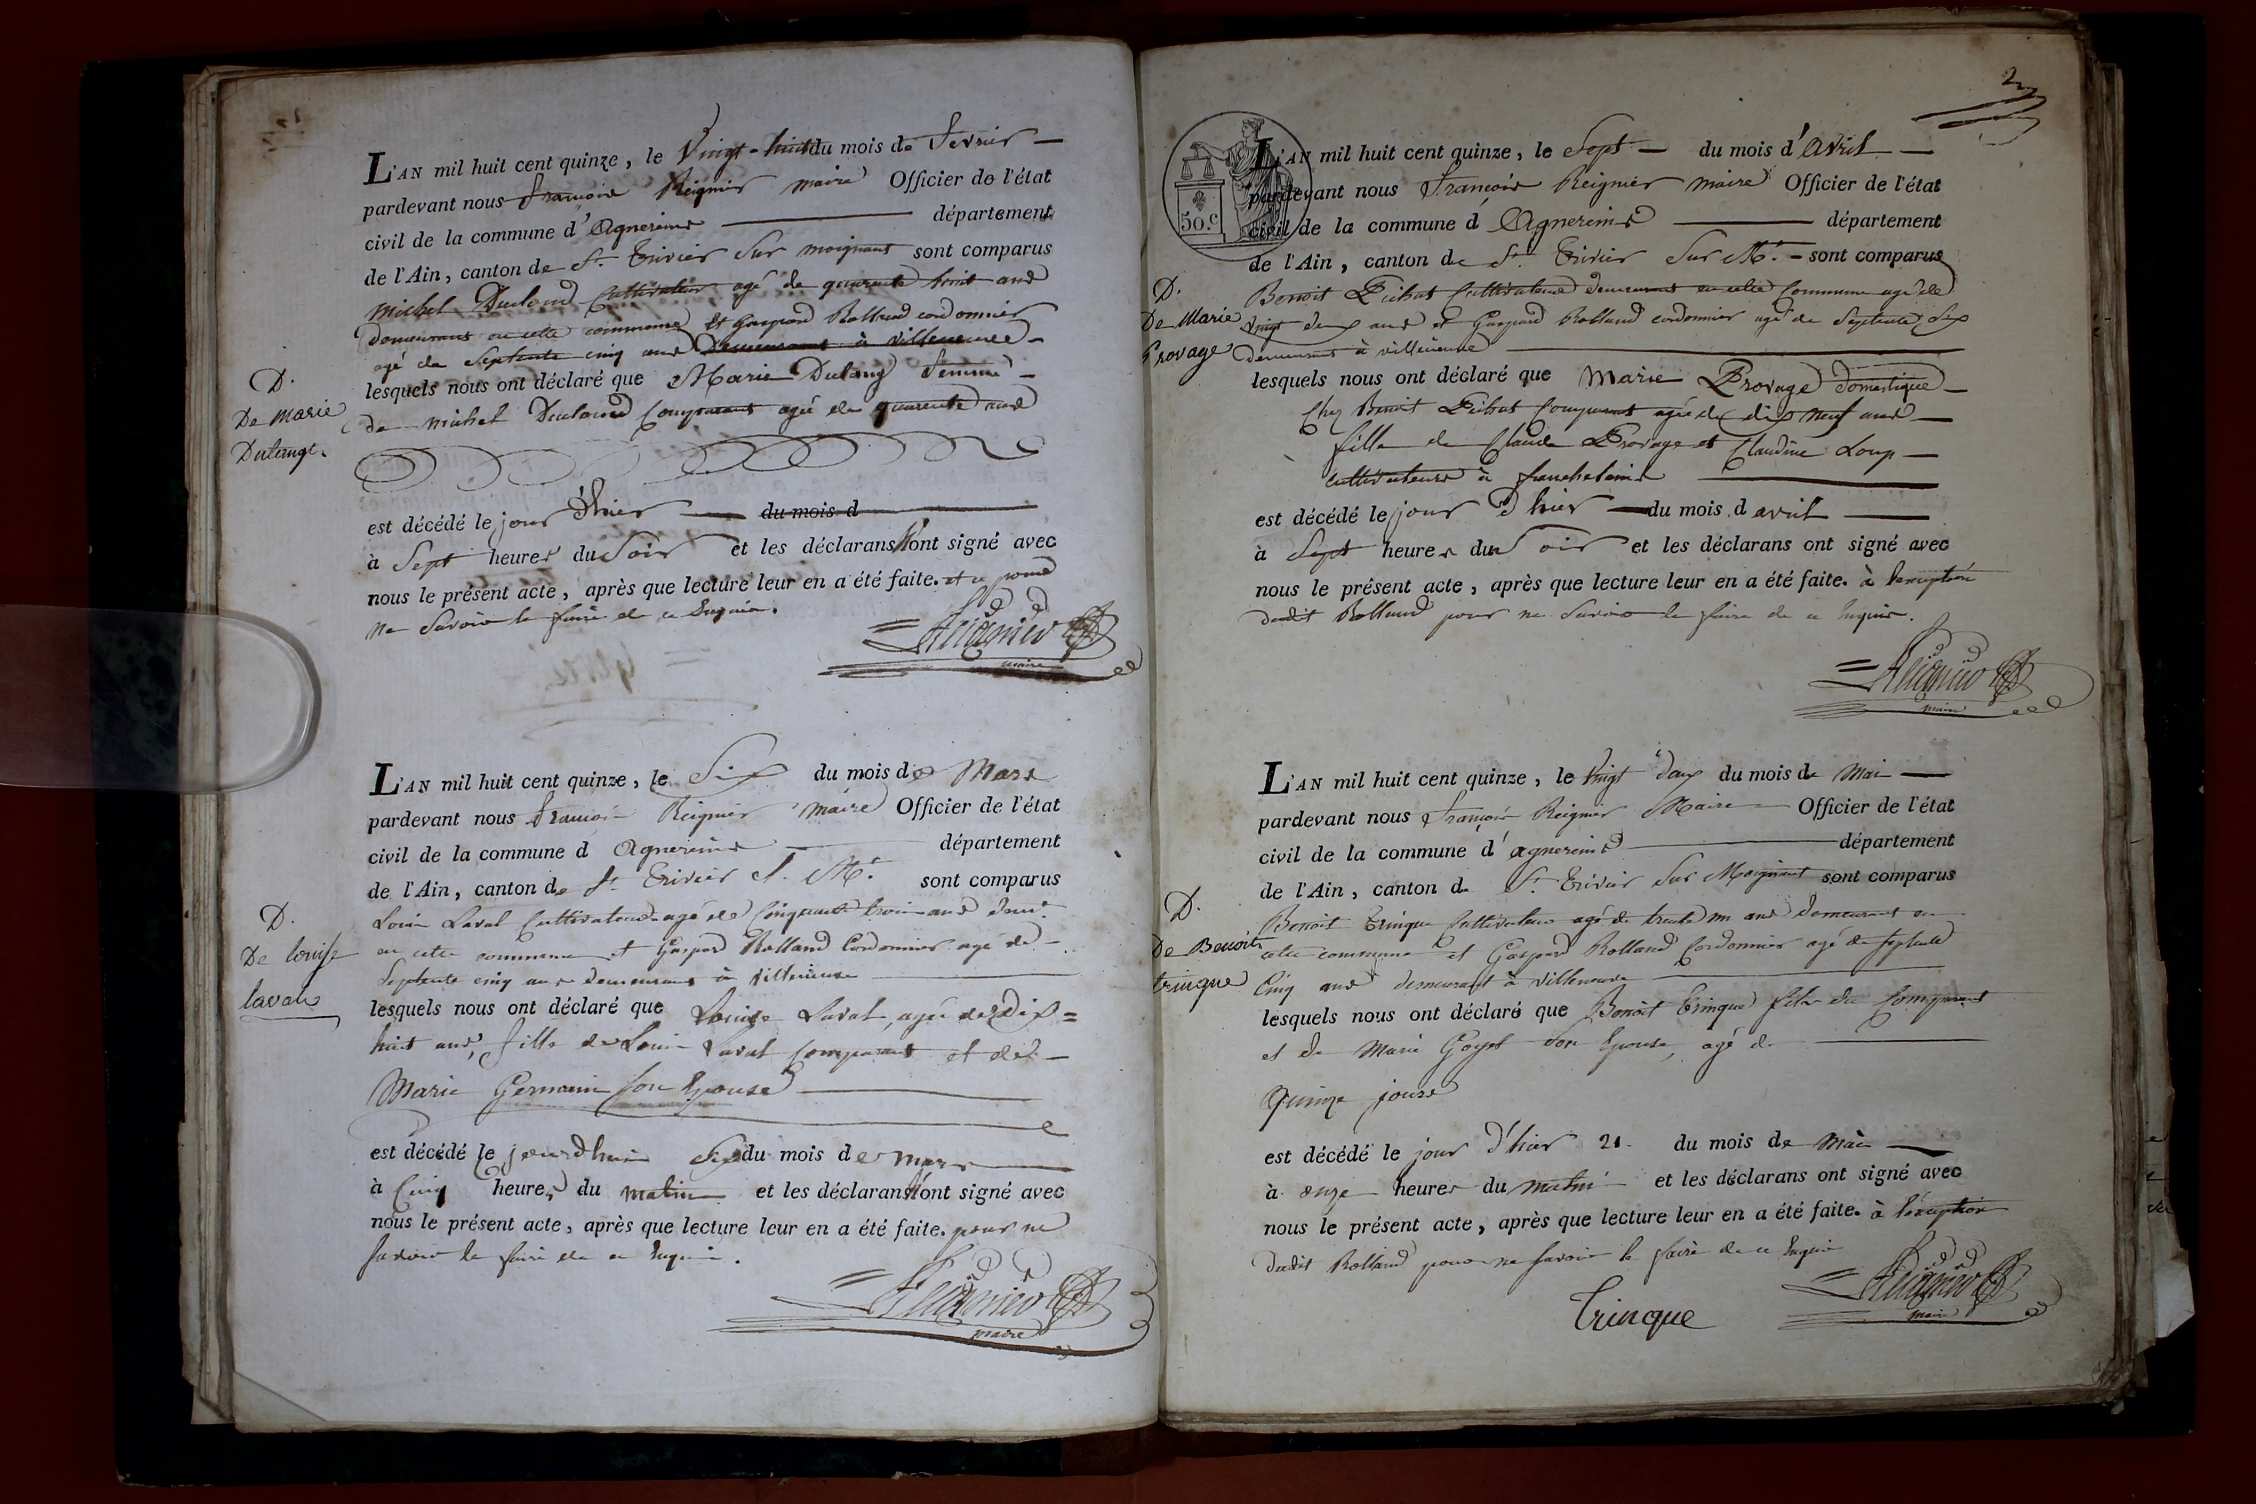 L'AN mil huit cent quinze, le Vingt-huit du mois de fevrier
pardevant nous françois Reignier maire Officier de l'état
civil de la commune d'Agnereins département
de l'Ain, canton de St. Trivier Sur moignans sont comparus
michel Cultivateur agé de quarente huit ans
demeurant en cette commune et Gaspard Rolland cordonnier
agé de Septente cinq ans Demeurant à villeneuve
D.
De marie
Dulange.
lesquels nous ont déclaré que Marie femme
de michel comparant agée de quarente ans
est décédé le jour d'hier du mois d
à Sept heures du Soir et les déclarans n'ont signé avec
nous le présent acte, après que lecture leur en a été faite. et ce pour
ne Savoir le faire de ce Enquis.
Reignier
maire
L'AN mil huit cent quinze, le Six du mois de Mars
pardevant nous françois Reignier maire Officier de l'état
civil de la commune d Agnereins département
de l'Ain, canton de St. Trivier S. Mt. sont comparus
D.
De louise
laval
Louis Laval Cultivateur agé de Cinquante trois ans demt.
en cette commune et Gaspard Rolland Cordonnier agé de
Septente cinq ans demeurant à villeneuve
lesquels nous ont déclaré que Louise Laval, agée de Dix=
huit ans, fille de Louis Laval comparant et de
Marie Germain son Epouse
est décédé le jourdhui Six du mois de mars
à Cinq heures du matin et les déclarans n'ont signé avec
nous le présent acte, après que lecture leur en a été faite. pour ne
savoir le faire de ce Enquis.
Reignier
maire
2
50.c
L'AN mil huit cent quinze, le Sept du mois d'Avril
pardevant nous françois Reignier maire Officier de l'état
civil de la commune d'Agnereins département
de l'Ain, canton de St. Trivier Sur Mt. sont comparus
D.
De Marie
Provage
Benoit Cultivateur demeurant en cette Commune agé de
vingt deux ans et Gaspard Rolland cordonnier agé de Septente Six
demeurant à villeneuve
lesquels nous ont déclaré que Marie Provage domestique
Chez Benoit comparant agée de dix neuf ans
fille de Claude Provage et Claudine Loup
cultivateurs à francheleins
est décédé le jour d'hier du mois d avril
à Sept heures du Soir et les déclarans ont signé avec
nous le présent acte, après que lecture leur en a été faite. à l'exception
dudit Rolland pour ne Savoir le faire de ce Enquis.
Reignier
maire
L'AN mil huit cent quinze, le vingt deux du mois de Mai
pardevant nous françois Reignier Maire Officier de l'état
civil de la commune d'agnereins département
de l'Ain, canton de St. Trivier Sur Moignans sont comparus
D.
De Benoit
trinque
Benoit Trinque Cultivateur agé de trente un ans demeurant en
cette commune et Gaspard Rolland Cordonnier agé de septente
Cinq ans demeurant à villeneuve
lesquels nous ont déclaré que Benoit Trinque fils du Comparant
et de Marie Goyet son Epouse, agé de
quinze jours
est décédé le jour d'hier 21. du mois de mai
à onze heures du matin et les déclarans ont signé avec
nous le présent acte, après que lecture leur en a été faite. à l'exception
dudit Rolland pour ne savoir le faire de ce Enquis
Trinque
Reignier
maire